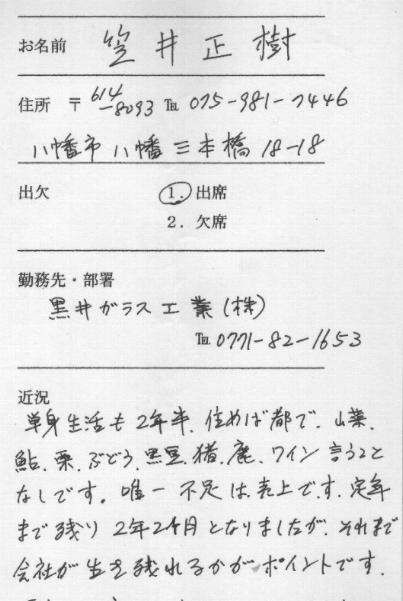 お名前 笠井正樹
住所 〒614-8093 ℡ 075-981-7446
八幡市八幡三本橋18-18
出欠 1. 出席
2. 欠席
勤務先・部署
黒井ガラス工業(株)
℡ 0771-82-1653
近況
単身生活も2年半、住めば都で、山菜、
鮎、栗、ぶどう、黒豆、猪、鹿、ワイン 言うこと
なしです。唯一 不足は、売上です。定年
まで残り 2年2ヶ月となりましたが、それまで
会社が生き残れるかがポイントです。